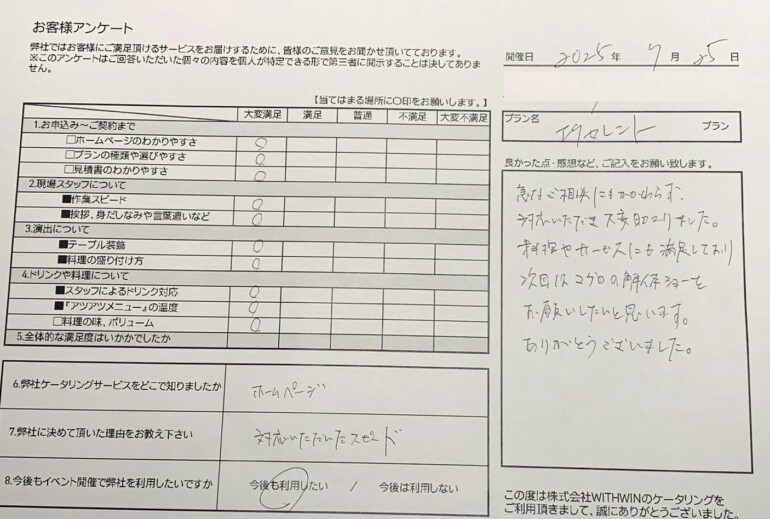 お客様アンケート
弊社ではお客様にご満足頂けるサービスをお届けするために、皆様のご意見をお聞かせ頂いております。
※このアンケートはご回答いただいた個々の内容を個人が特定できる形で第三者に開示することは決してありま
せん。
開催日 2025年 7月 25日
【当てはまる場所に○印をお願いします。】
大変満足 満足 普通 不満足 大変不満足
1.お申込み～ご契約まで
□ホームページのわかりやすさ ○
□プランの種類や選びやすさ ○
□見積書のわかりやすさ ○
2.現場スタッフについて
■作業スピード ○
■挨拶、身だしなみや言葉遣いなど ○
3.演出について
■テーブル装飾 ○
■料理の盛り付け方 ○
4.ドリンクや料理について
■スタッフによるドリンク対応 ○
■『アツアツメニュー』の温度 ○
□料理の味、ボリューム ○
5.全体的な満足度はいかがでしたか
6.弊社ケータリングサービスをどこで知りましたか ホームページ
7.弊社に決めて頂いた理由をお教え下さい 対応いただいたスピード
8.今後もイベント開催で弊社を利用したいですか 今後も利用したい / 今後は利用しない
プラン名 エクセレント プラン
良かった点・感想など、ご記入をお願い致します。
急なご相談にもかかわらず、
対応いただき大変助かりました。
料理やサービスにも満足しており
次回はマグロの解体ショーを
お願いしたいと思います。
ありがとうございました。
この度は株式会社WITHWINのケータリングを
ご利用頂きまして、誠にありがとうございました。